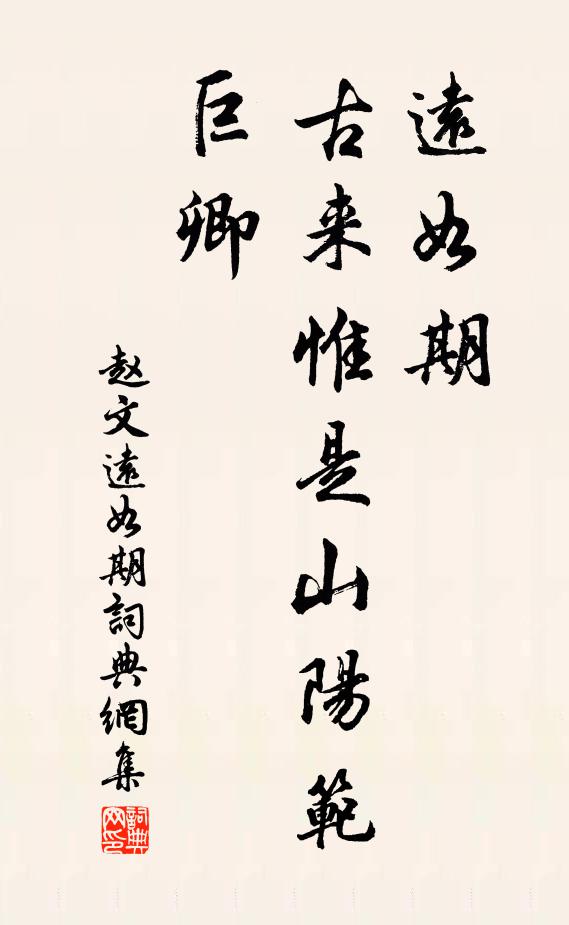 遠如期
古来惟是山陽範
巨卿
赵文遠如期詞典網集
詞典
网印